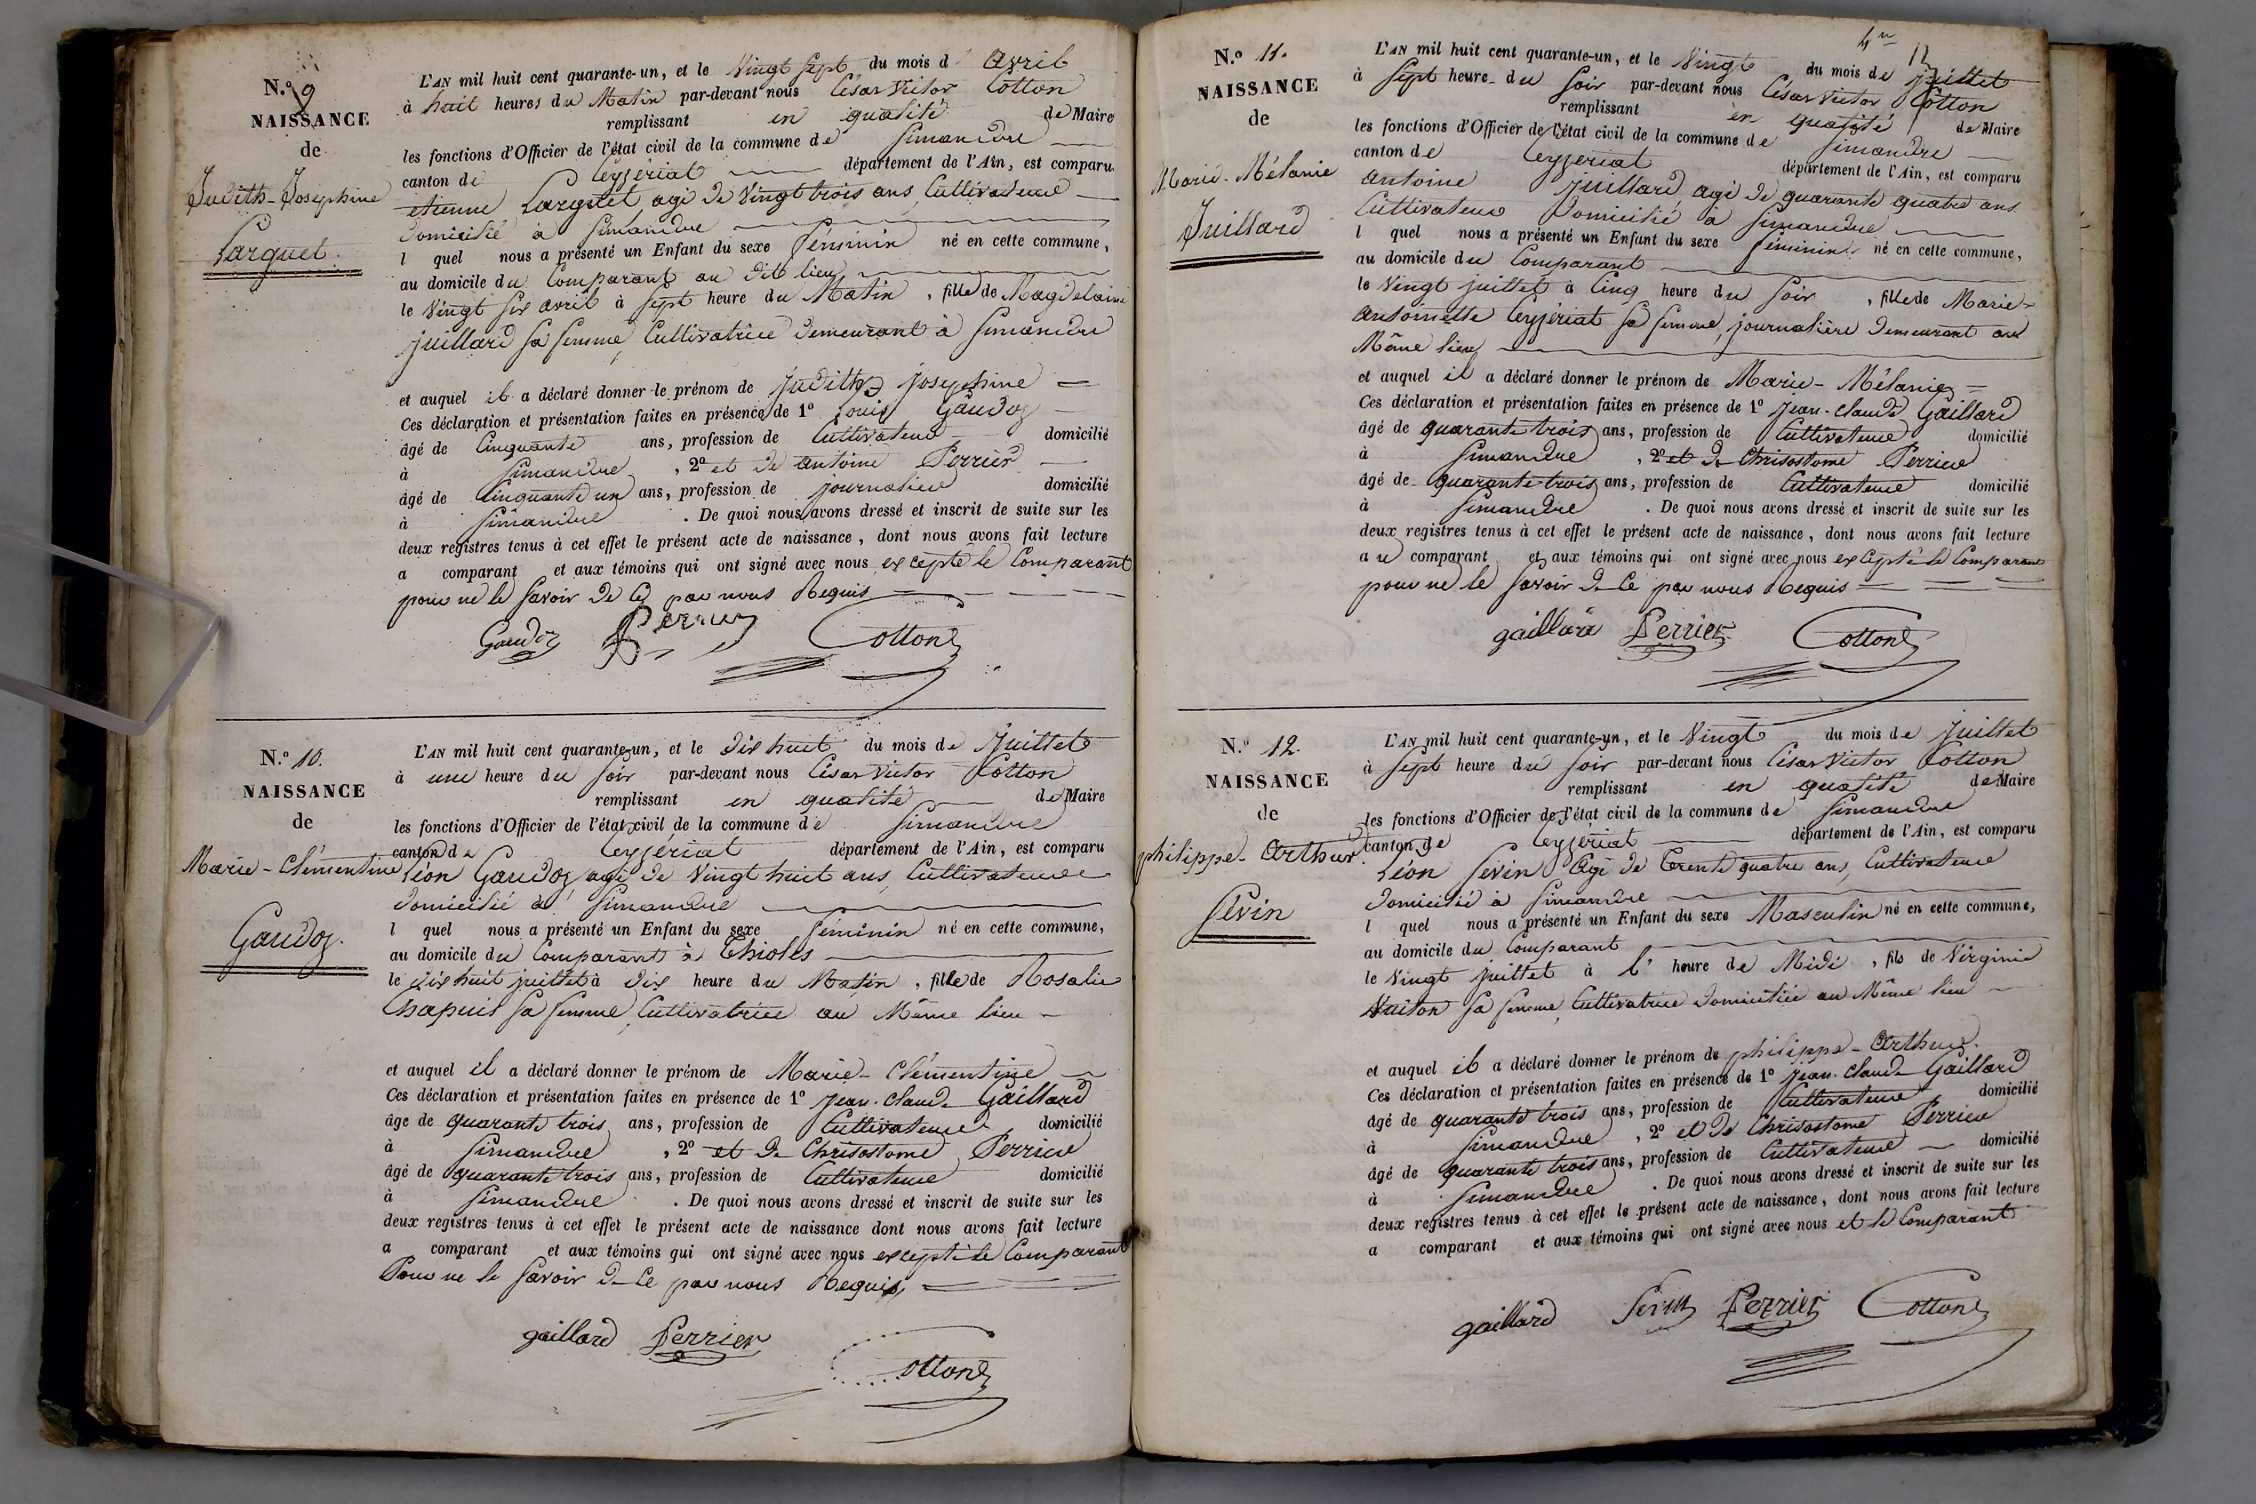 N.o 9
NAISSANCE
de
Judith-Josephine
Larguet.
L'AN mil huit cent quarante-un, et le Vingt Sept du mois d' Avril
à huit heures du Matin par-devant nous César Victor Cotton
remplissant en qualité de Maire
les fonctions d'Officier de l'état civil de la commune de Simandre
canton de Ceyzériat département de l'Ain, est comparu
etienne Larguet agé de Vingt trois ans, Cultivateur
domicilié à Simandre
l quel nous a présenté un Enfant du sexe féminin né en cette commune,
au domicile du Comparant au dit lieu
le Vingt six avril à Sept heure du Matin, fille de Magdelaine
juillard Sa femme, Cultivatrice demeurant à Simandre
et auquel il a déclaré donner le prénom de Judith Josephine
Ces déclaration et présentation faites en présence de 1o Louis Gaudoz
âgé de Cinquante ans, profession de Cultivateur domicilié
à Simandre, 2o et de antoine Perrier
âgé de Cinquante un ans, profession de journalier domicilié
à Simandre. De quoi nous avons dressé et inscrit de suite sur les
deux registres tenus à cet effet le présent acte de naissance, dont nous avons fait lecture
a comparant et aux témoins qui ont signé avec nous excepté le Comparant
pour ne le Savoir de Ce par nous Requis
Gaudoz Perrier Cotton
N.o 10.
NAISSANCE
de
Marie-Clémentine
Gaudoz.
L'AN mil huit cent quarante-un, et le dix huit du mois de Juillet
à une heure du Soir par-devant nous César Victor Cotton
remplissant en qualité de Maire
les fonctions d'Officier de l'état civil de la commune de Simandre
canton de Ceyzériat département de l'Ain, est comparu
Léon Gaudoz agé de Vingt huit ans, Cultivateur
domicilié à Simandre
l quel nous a présenté un Enfant du sexe féminin né en cette commune,
au domicile du Comparant à Thioles
le dix huit juillet à dix heure du Matin, fille de Rosalie
Chapuis Sa femme, Cultivatrice au Même lieu
et auquel il a déclaré donner le prénom de Marie-Clémentine
Ces déclaration et présentation faites en présence de 1o Jean-Claude Gaillard
âge de quarante trois ans, profession de Cultivateur domicilié
à Simandre, 2o et de Chrisostome Perrier
âgé de quarante trois ans, profession de Cultivateur domicilié
à Simandre. De quoi nous avons dressé et inscrit de suite sur les
deux registres tenus à cet effet le présent acte de naissance dont nous avons fait lecture
a comparant et aux témoins qui ont signé avec nous excepté le Comparant
Pour ne le Savoir de Ce par nous Requis,
gaillard Perrier Cotton
N.o 11.
NAISSANCE
de
Marie-Mélanie
Juillard
L'AN mil huit cent quarante-un, et le Vingt du mois de Juillet
à Sept heure du Soir par-devant nous César Victor Cotton
remplissant en qualité de Maire
les fonctions d'Officier de l'état civil de la commune de Simandre
canton de Ceyzériat département de l'Ain, est comparu
antoine Juillard, agé de quarante quatre ans
Cultivateur Domicilié à Simandre
l quel nous a présenté un Enfant du sexe féminin né en cette commune,
au domicile du Comparant
le Vingt juillet à Cinq heure du Soir, fille de Marie-
antoinette Ceyzériat Sa femme, journalière demeurant au
Même lieu
et auquel il a déclaré donner le prénom de Marie-Mélanie
Ces déclaration et présentation faites en présence de 1o Jean-Claude Gaillard
âgé de quarante trois ans, profession de Cultivateur domicilié
à Simandre, 2o et de Chrisostome Perrier
âgé de quarante trois ans, profession de Cultivateur domicilié
à Simandre. De quoi nous avons dressé et inscrit de suite sur les
deux registres tenus à cet effet le présent acte de naissance, dont nous avons fait lecture
au comparant et aux témoins qui ont signé avec nous excepté le Comparant
pour ne le Savoir de Ce par nous Requis
gaillard Perrier Cotton
N.o 12.
NAISSANCE
de
philippe-Arthur
Sévin
L'AN mil huit cent quarante-un, et le Vingt du mois de Juillet
à Sept heure du Soir par-devant nous César Victor Cotton
remplissant en qualité de Maire
les fonctions d'Officier de l'état civil de la commune de Simandre
canton de Ceyzériat département de l'Ain, est comparu
Léon Sevin Agé de Trente quatre ans, Cultivateur
domicilié à Simandre
l quel nous a présenté un Enfant du sexe Masculin né en cette commune,
au domicile du Comparant
le Vingt juillet à l' heure de Midi, fils de Virginie
Vuiton Sa femme, Cultivatrice domiciliée au Même lieu
et auquel il a déclaré donner le prénom de philippe-Arthur.
Ces déclaration et présentation faites en présence de 1o Jean-Claude Gaillard
âgé de quarante trois ans, profession de Cultivateur domicilié
à Simandre, 2o et de Chrisostome Perrier
âgé de quarante trois ans, profession de Cultivateur domicilié
à Simandre. De quoi nous avons dressé et inscrit de suite sur les
deux registres tenus à cet effet le présent acte de naissance, dont nous avons fait lecture
a comparant et aux témoins qui ont signé avec nous et le Comparant
gaillard Sevin Perrier Cotton